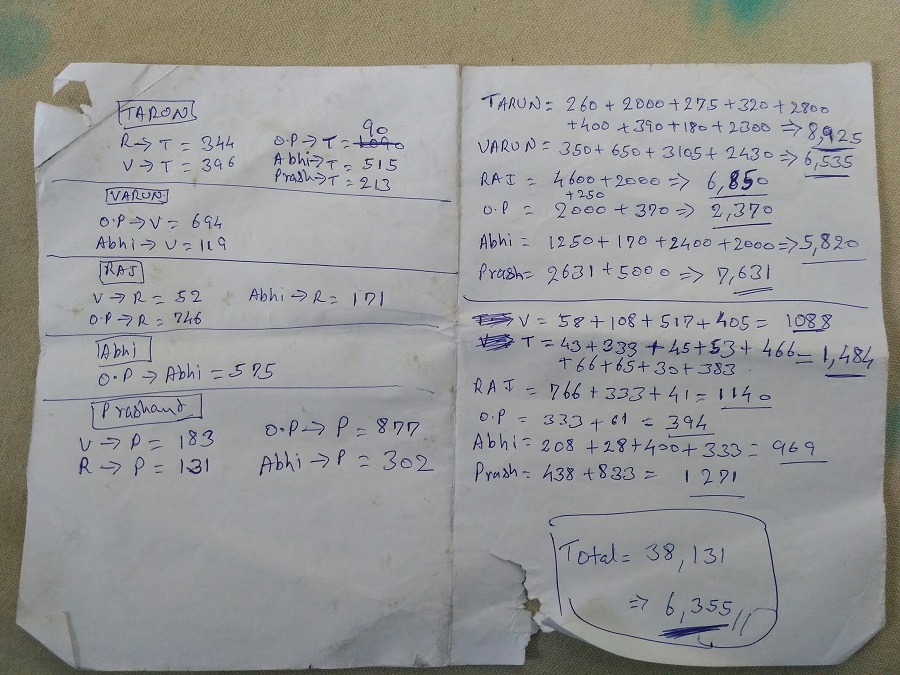 TARUN
R → T = 344
V → T = 396
90
O.P → T = 1090
Abhi → T = 515
Prash → T = 213
VARUN
O.P → V = 694
Abhi → V = 119
RAJ
V → R = 52
Abhi → R = 171
O.P → R = 746
Abhi
O.P → Abhi = 575
Prashant
V → P = 183
O.P → P = 877
R → P = 131
Abhi → P = 302
TARUN = 260 + 2000 + 275 + 320 + 2800
+ 400 + 390 + 180 + 2300 ⇒ 8,925
VARUN = 350 + 650 + 3105 + 2430 ⇒ 6,535
RAJ = 4600 + 2000 ⇒ 6,850
+ 250
O.P = 2000 + 370 ⇒ 2,370
Abhi = 1250 + 170 + 2400 + 2000 ⇒ 5,820
Prash = 2631 + 5000 ⇒ 7,631
V = 58 + 108 + 517 + 405 = 1088
T = 43 + 333 + 45 + 53 + 466 = 1,484
+ 66 + 65 + 30 + 383
RAJ = 766 + 333 + 41 = 1140
O.P = 333 + 61 = 394
Abhi = 208 + 28 + 400 + 333 = 969
Prash = 438 + 833 = 1271
Total = 38,131
⇒ 6,355 //